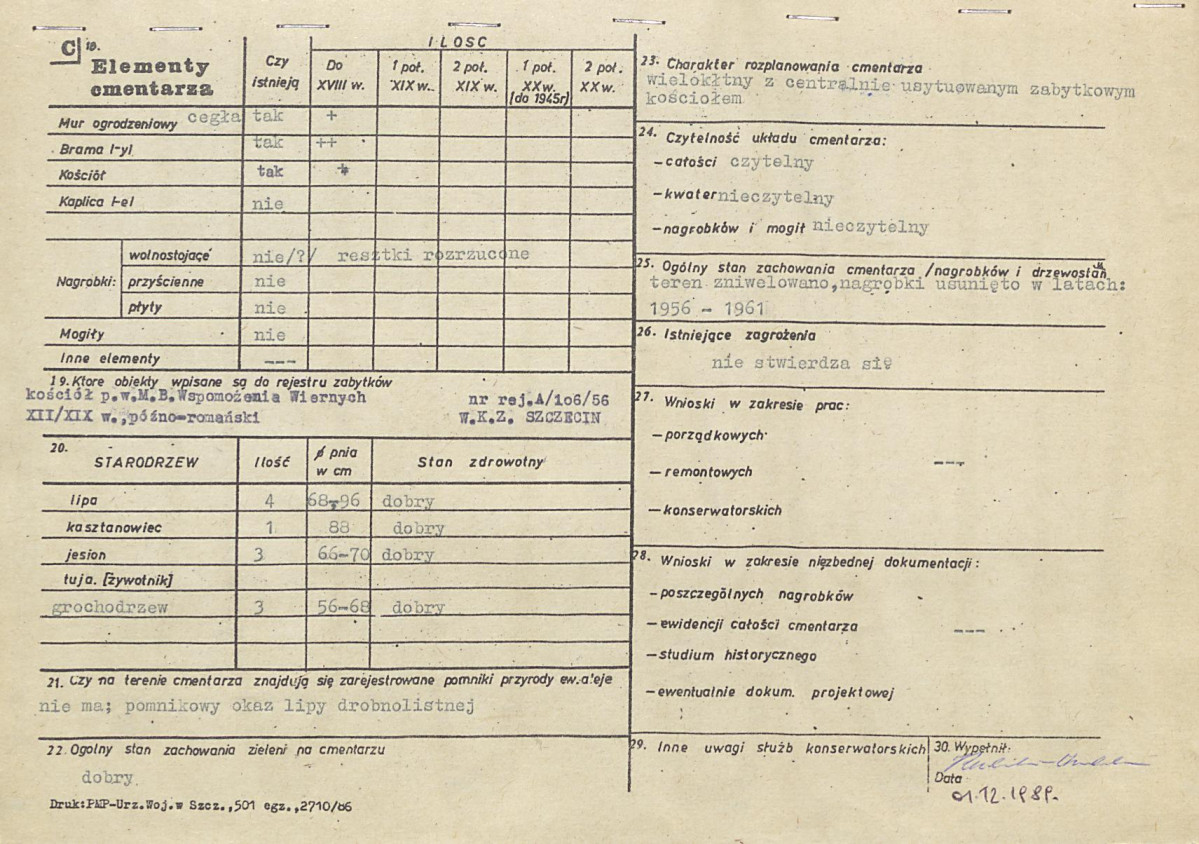 C 18.
Elementy cmentarza
Czy istnieją
ILOSC
Do XVIII w.
1 poł. XIX w.
2 poł. XIX w.
1 poł. XX w. (do 1945r)
2 poł. XX w.
Mur ogrodzeniowy cegła tak +
Brama /-y/ tak ++
Kościół tak +
Kaplica /-e/ nie
Nagrobki:
wolnostojące nie/?/ resztki rozrzucone
przyścienne nie
płyty nie
Mogiły nie
Inne elementy ---
19. Które obiekty wpisane są do rejestru zabytków
kościół p.w.M.B.Wspomożenia Wiernych nr rej.A/106/56
XII/XIX w.,późno-romański W.K.Z. SZCZECIN
20.
STARODRZEW Ilość ø pnia w cm Stan zdrowotny
lipa 4 68-96 dobry
kasztanowiec 1 88 dobry
jesion 3 66-70 dobry
tuja. [żywotnik]
grochodrzew 3 56-68 dobry
21. Czy na terenie cmentarza znajdują się zarejestrowane pomniki przyrody ew. aleje
nie ma; pomnikowy okaz lipy drobnolistnej
22. Ogolny stan zachowania zieleni na cmentarzu
dobry
Druk:PMP-Urz.Woj.w Szcz.,501 egz.,2710/86
23. Charakter rozplanowania cmentarza
wielokłtny z centralnie usytuowanym zabytkowym
kościołem
24. Czytelność układu cmentarza:
- całości czytelny
- kwater nieczytelny
- nagrobków i mogił nieczytelny
25. Ogólny stan zachowania cmentarza /nagrobków i drzewostan
teren zniwelowano,nagrobki usunięto w latach:
1956 - 1961
26. Istniejące zagrożenia
nie stwierdza się
27. Wnioski w zakresie prac:
- porządkowych
- remontowych ---
- konserwatorskich
28. Wnioski w zakresie niezbędnej dokumentacji:
- poszczególnych nagrobków
- ewidencji całości cmentarza ---
- studium historycznego
- ewentualnie dokum. projektowej
29. Inne uwagi służb konserwatorskich
30. Wypełnił:
Data
01.12.1989.